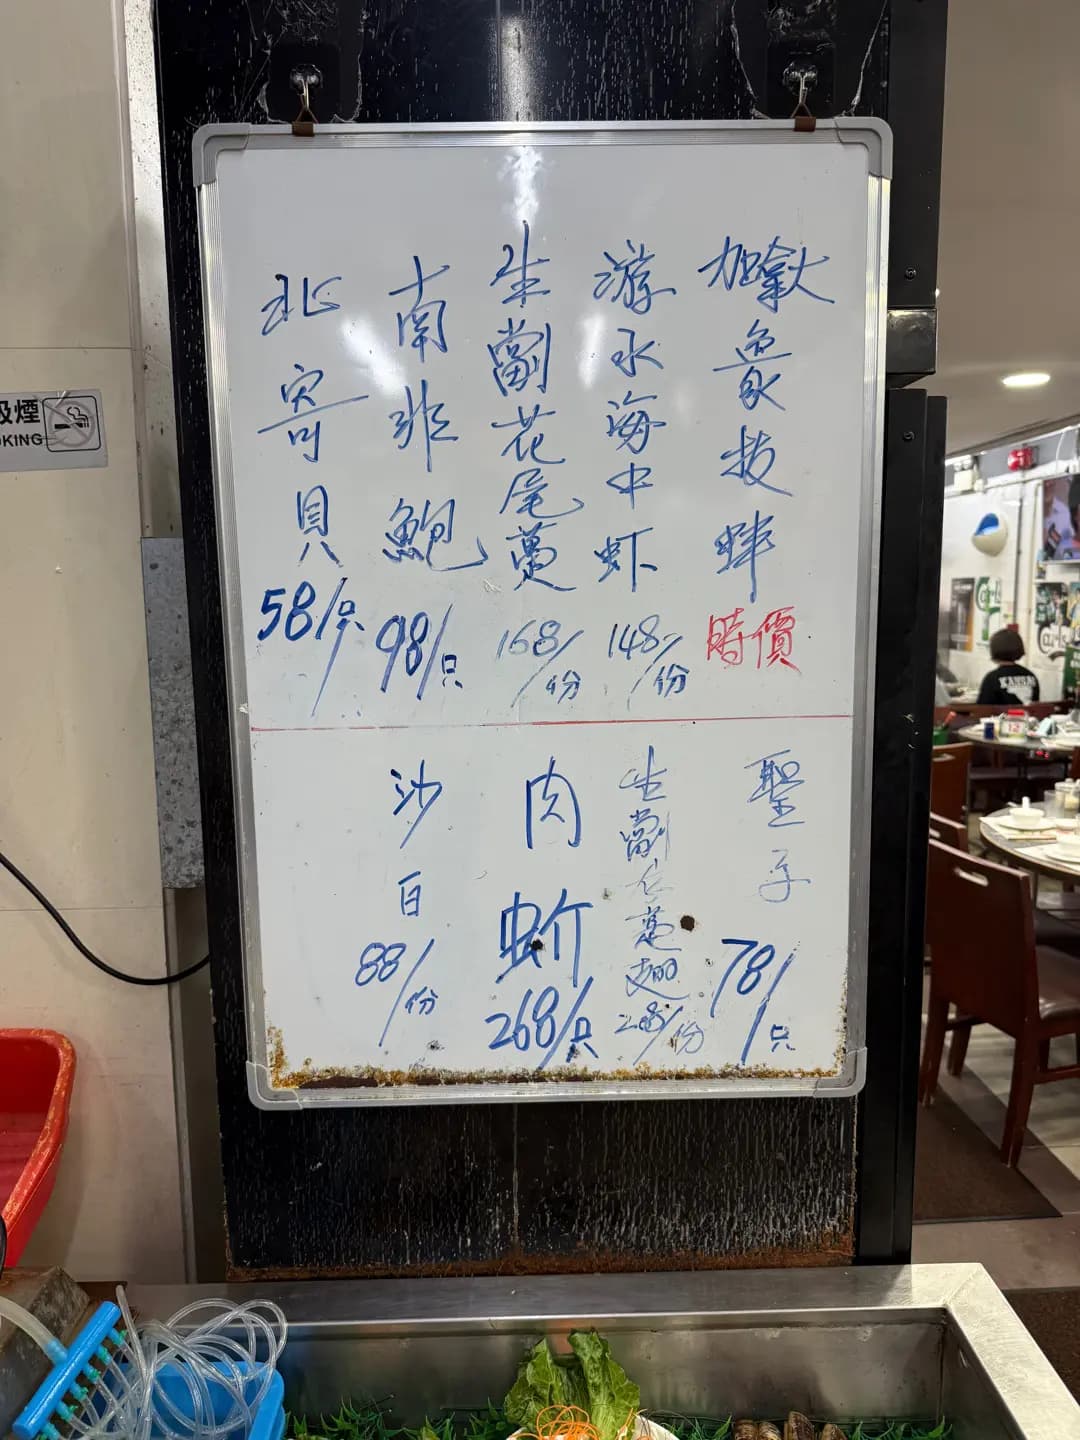 加拿大象拔蚌
時價
游水海中虾
148/份
生劏花尾躉
168/份
南非鮑
98/只
北寄貝
58/只
聖子
78/1只
生劏
躉翅
份
肉蚧
268/只
沙白
88/份
吸煙
OKING